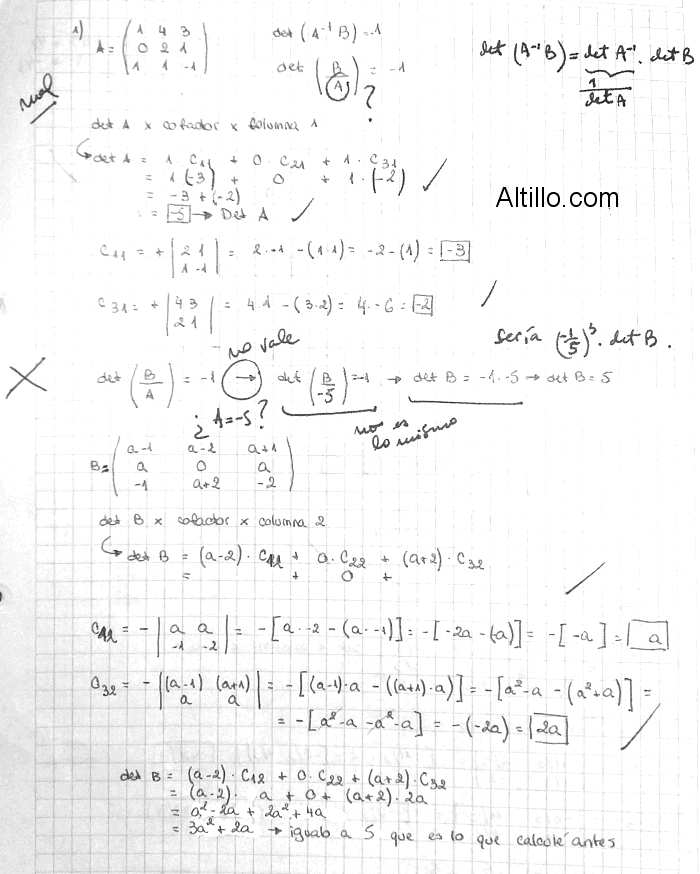 1) A = ( 1 4 3 det (A⁻¹ B) = -1
0 2 1
1 1 -1 ) det ( B/A ) = -1
?
det (A⁻¹ B) = det A⁻¹ . det B
1/det A
mal
det A x cofactor x columna 1
det A = 1 C11 + 0. C21 + 1. C31
= 1 (-3) + 0 + 1. (-2)
= -3 + (-2)
= -5 → Det A
Altillo.com
C11 = + | 2 1
1 -1 | = 2.-1 - (1.1) = -2 - (1) = -3
C31 = + | 4 3
2 1 | = 4.1 - (3.2) = 4 - 6 = -2
sería (-1/5)³. det B.
no vale
det ( B/A ) = -1 → det ( B/-5 ) = -1 → det B = -1.-5 → det B = 5
¿ A = -5 ?
no es
lo mismo
B = ( a-1 a-2 a+1
a 0 a
-1 a+2 -2 )
det B x cofactor x columna 2
det B = (a-2). C12 + 0. C22 + (a+2). C32
= + 0 +
C12 = - | a a
-1 -2 | = - [a.-2 - (a.-1)] = - [-2a - (-a)] = - [-a] = a
C32 = - | (a-1) (a+1)
a a | = - [(a-1).a - ((a+1).a)] = - [a² - a - (a² + a)] =
= - [a² - a - a² - a] = - (-2a) = 2a
det B = (a-2). C12 + 0. C22 + (a+2). C32
= (a-2). a + 0 + (a+2). 2a
= a² - 2a + 2a² + 4a
= 3a² + 2a → igualo a 5 que es lo que calculé antes